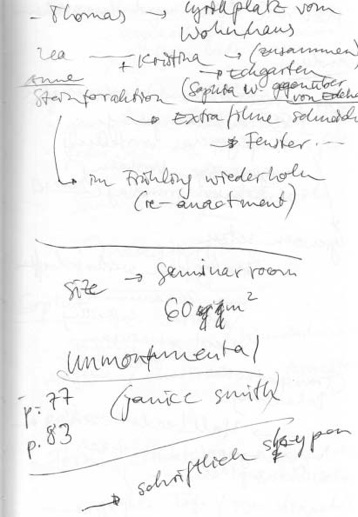 - Thomas → vom
Wohnhaus
Lea + Kristina → (zusammen)
→ Eckgarten
Anne
(Sophia W. gegenüber
von
→ Extra filme
→ Fenster...
→ im Frühling wiederholen
(re-anactment)
size → seminar room
60 qm²
unmonumental
(janice smith)
p. 77
p. 83
→ schriftlich skypen